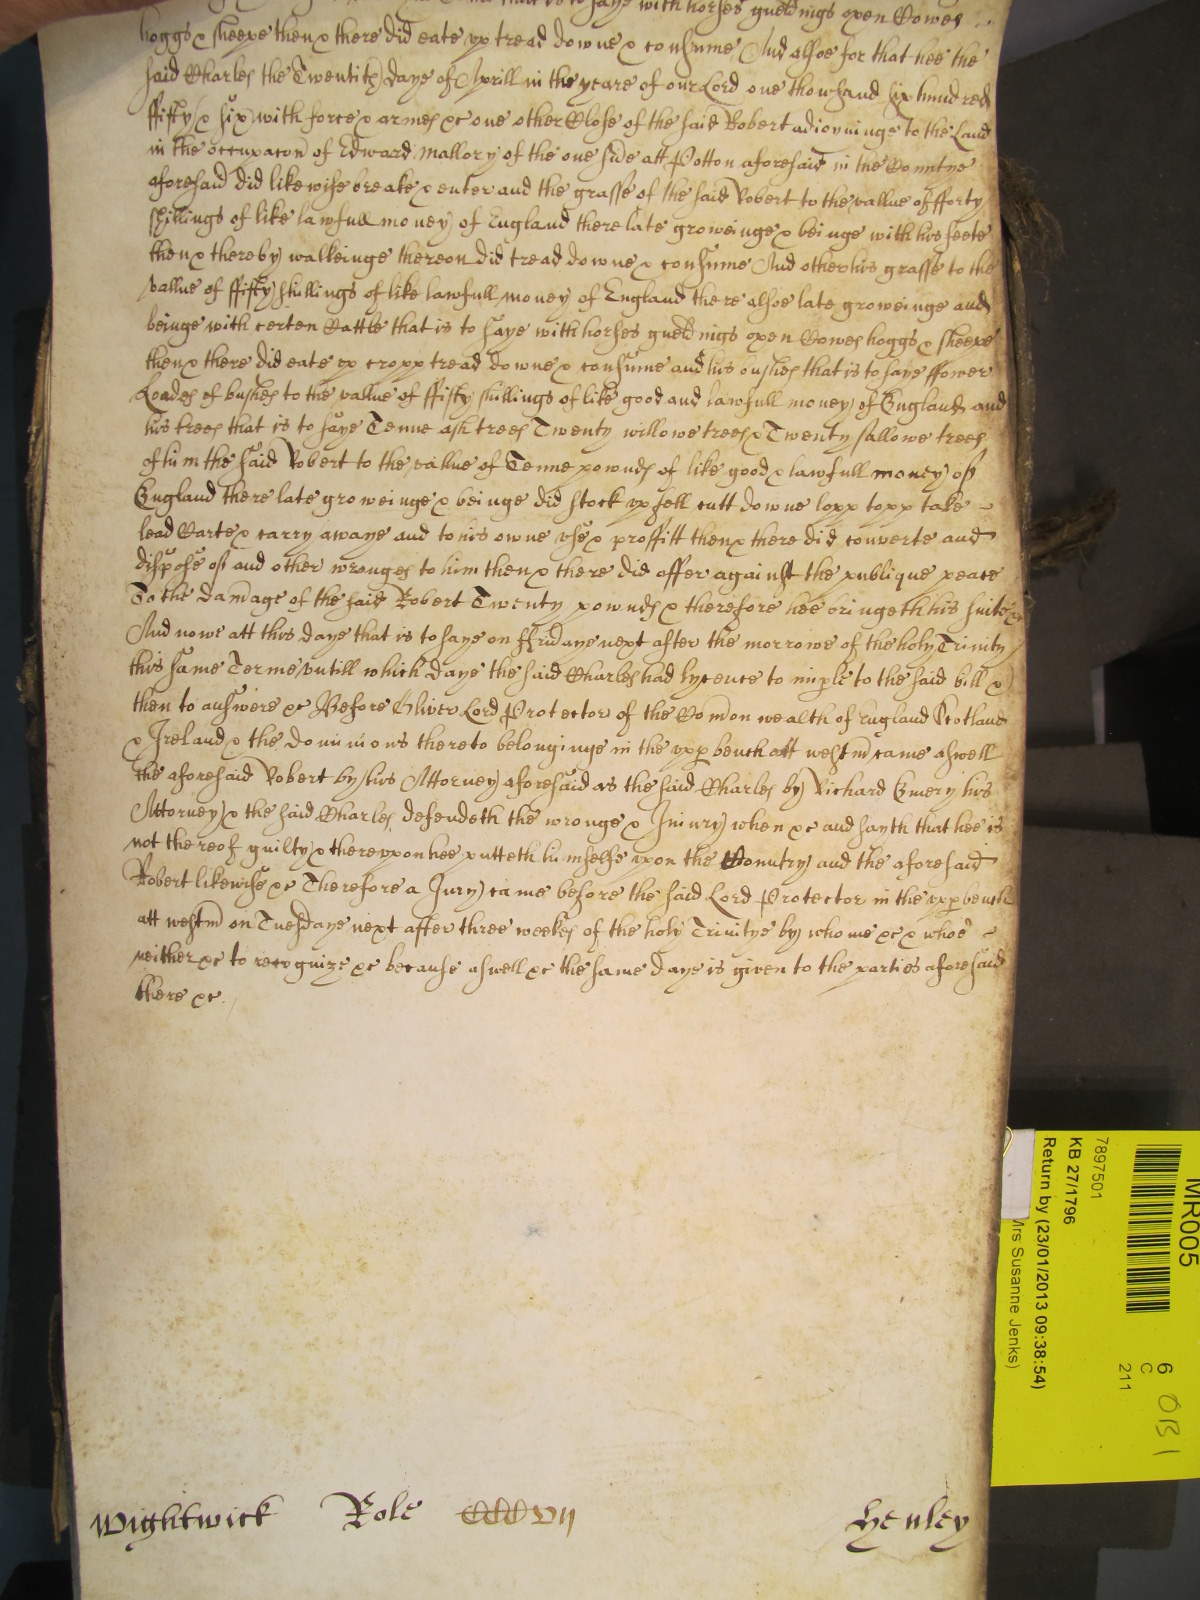 that is to saye with horses gueldings oxen Cowes
hoggs & sheepe then & there did eate vp tread downe & consume, And alsoe for that hee the
said Charles the Twentith daye of Aprill in the yeare of our Lord one thowsand six hundred
ffifty & six with force & armes &c one other Close of the said Robert adioyninge to the Land
in the occupacon of Edward Mallory of the one side att Potton aforesaid in the Countye
aforesaid did likewise breake & enter and the grasse of the said Robert to the vallue of fforty
shillings of like lawfull money of England there late groweinge & beinge with his feete
then & thereby walkeinge thereon did tread downe & consume And other his grasse to the
vallue of ffifty shillings of like lawfull money of England there alsoe late groweinge and
beinge with certen Cattle that is to saye with horses gueldnigs oxen Cowes hoggs & sheepe
then & there did eate vp cropp tread downe & consume and his bushes that is to saye ffower
Loades of bushes to the vallue of ffifty shillings of like good and lawfull money of England and
his trees that is to saye Tenne ash trees Twenty willowe trees & Twenty sallowe trees
of him the said Robert to the vallue of Tenne pownds of like good & lawfull money off
England there late groweinge & beinge did stock vp fell cutt downe lopp topp take
lead Carte & carry awaye and to his owne vse & proffitt then & there did converte and
dispose off and other wronges to him then & there did offer against the publique peace
To the damage of the said Robert Twenty pownds & therefore hee bringeth his suite &c
And nowe att this daye that is to saye on ffridaye next after the morrowe of the holy Trinity
this same Terme vntill which daye the said Charles had lycence to imple to the said bill &
then to answere &c Before Oliver Lord Protector of the Comon wealth of England Scotland
& Ireland & the dominions thereto belonginge in the vpp bench att westm came aswell
the aforesaid Robert by his Attorney aforesaid as the said Charles by Richard Emery his
Attorney & the said Charles defendeth the wronge & Iniury when &c and sayth that hee is
not thereof guilty & therevpon hee putteth himselfe vpon the Countrey and the aforesaid
Robert likewise &c Therefore a Jury came before the said Lord Protector in the vpp bench
att westm on Tuesdaye next after three weekes of the holy Trinitye by whome &c & whoe
neither &c to recognize &c because aswell &c the same daye is given to the parties aforesaid
there &c
Wightwick Role CCCCVII Henley
MR005
7897501
KB 27/1796
Return by (23/01/2013 09:38:54)
Mrs Susanne Jenks)
6
C
211
OB1